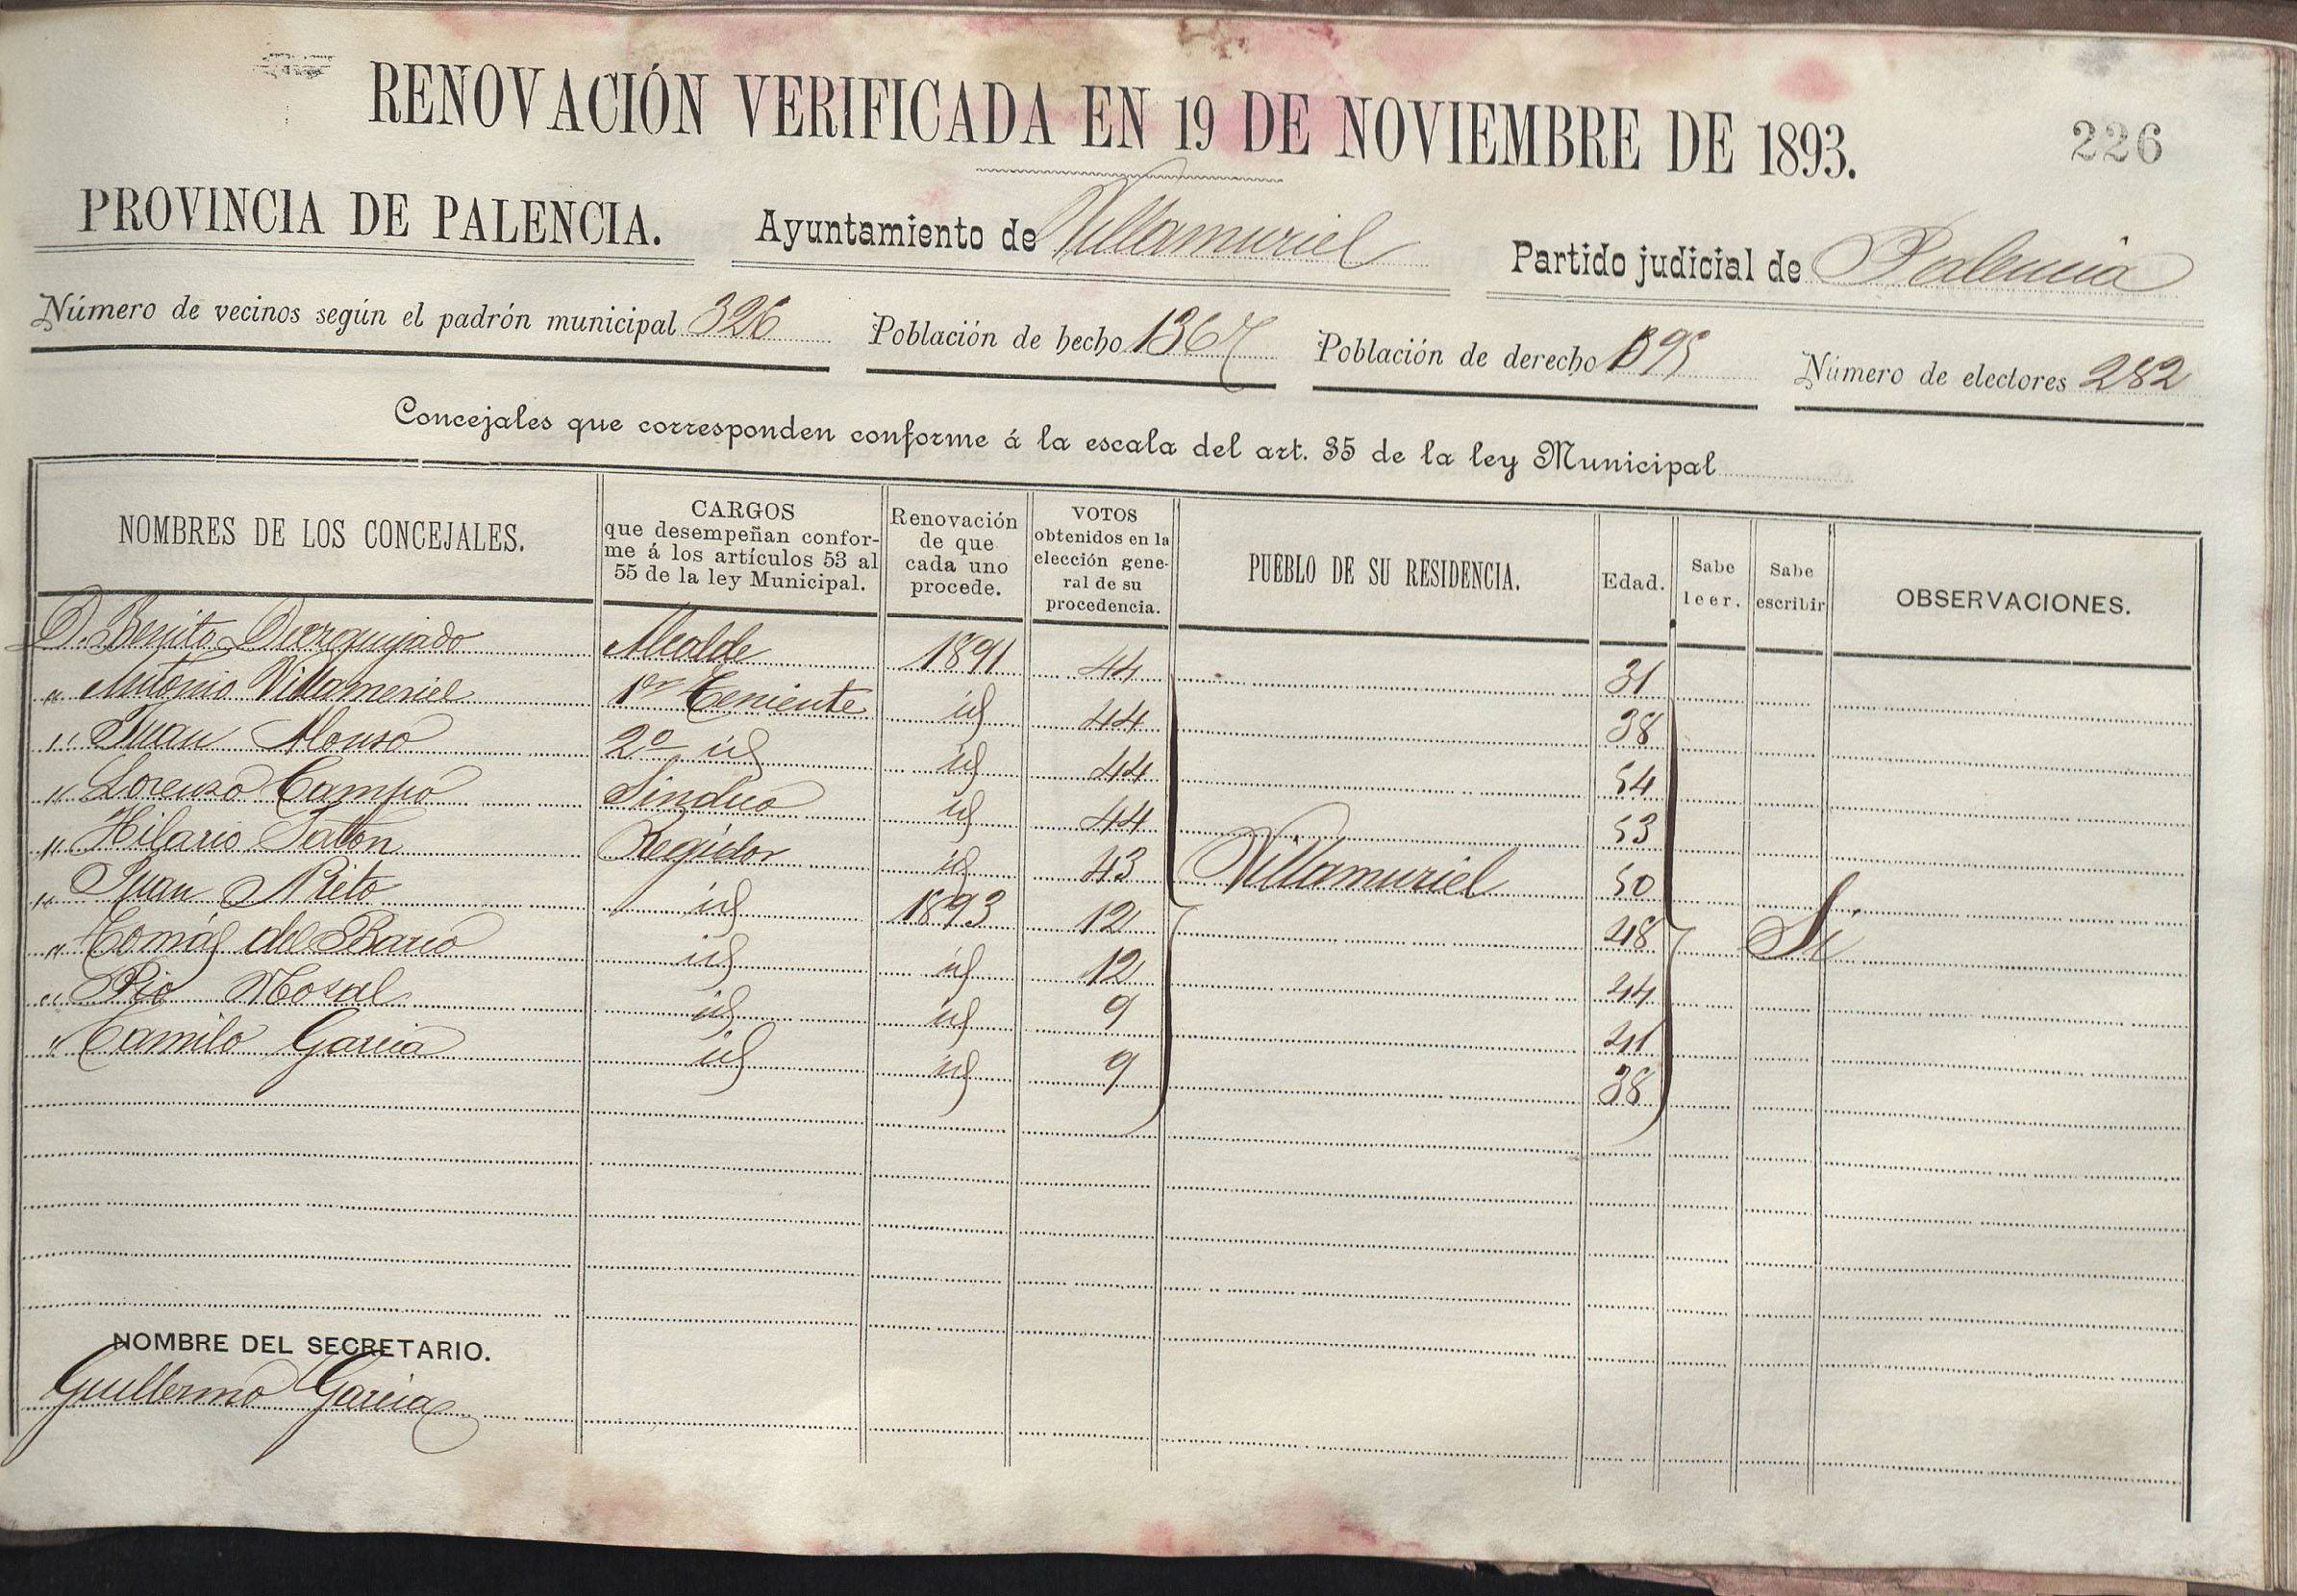 RENOVACIÓN VERIFICADA EN 19 DE NOVIEMBRE DE 1893.
226
PROVINCIA DE PALENCIA. Ayuntamiento de Villamuriel Partido judicial de Palencia
Número de vecinos según el padrón municipal 326 Población de hecho 1367 Población de derecho Número de electores 282
Concejales que corresponden conforme á la escala del art. 35 de la ley Municipal
NOMBRES DE LOS CONCEJALES.
CARGOS
que desempeñan confor-
me á los artículos 53 al
55 de la ley Municipal.
Renovación
de que
cada uno
procede.
VOTOS
obtenidos en la
elección gene-
ral de su
procedencia.
PUEBLO DE SU RESIDENCIA.
Edad.
Sabe
leer.
Sabe
escribir
OBSERVACIONES.
D. Benito Alcalde 1891 44 31
" Antonio Villameriel 1er Teniente id 44 38
" Juan Alonso 2º id id 44 54
" Lorenzo Campo Sindico id 44 53
" Hilario Regidor id 43 Villamuriel 50
" Juan Prieto id 1893 12 48 Si
" Tomás del Barrio id id 12 44
" Pio id id 9 41
" Camilo Garcia id id 9 38
NOMBRE DEL SECRETARIO.
Guillermo Garcia